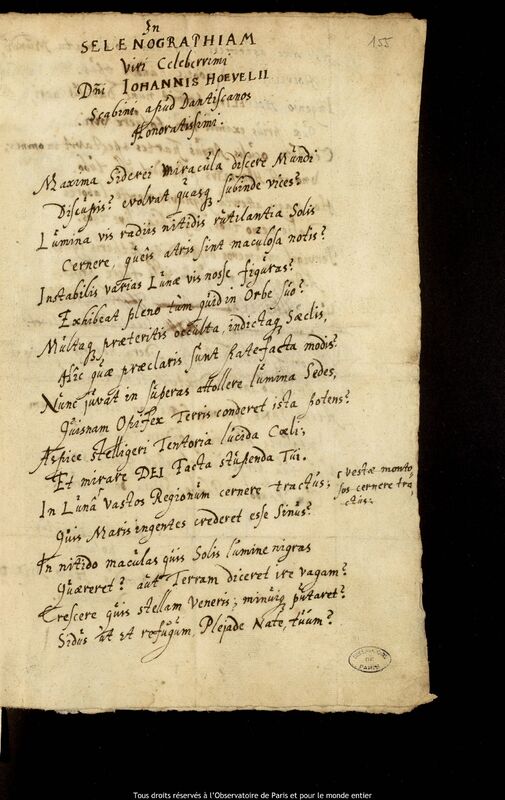 155
In
SELENOGRAPHIAM
Viri Celeberrimi
Dñi IOHANNIS HOEVELII
Scabini apud Dantiscanos
Honoratissimi.
Maxima Siderei miracula discere Mundi
Discupis? evolvat quasq subinde vices?
Lumina vis radiis nitidis rutilantia Solis
Cernere, queis atris sint maculosa notis?
Instabilis varias Lunæ vis nosse figuras?
Exhibeat pleno tum quid in Orbe suo?
Multaq præteritis occulta, indictaq Sæclis,
Hîc quæ præclaris sunt patefacta modis?
Nunc juvat in superas attollere lumina Sedes,
Quisnam Opifex Terris conderet ista potens?
Aspice stelligeri Tentoria lucida Cœli;
Et mirare DEI Facta stupenda Tui.
In Lunâ vastos Regionum cernere tractus;
Vestæ monto
sos cernere tra
ctus:
Quis Maris ingentes crederet esse Sinus?
In nitido maculas quis Solis lumine nigras
Quæreret? aut Terram diceret ire vagam?
Crescere quis stellam Veneris; minuiq putaret?
Sidus ut et refugum, Plejade Nate, tuum?
OBSERVATOIRE
DE
PARIS
Tous droits réservés à l'Observatoire de Paris et pour le monde entier